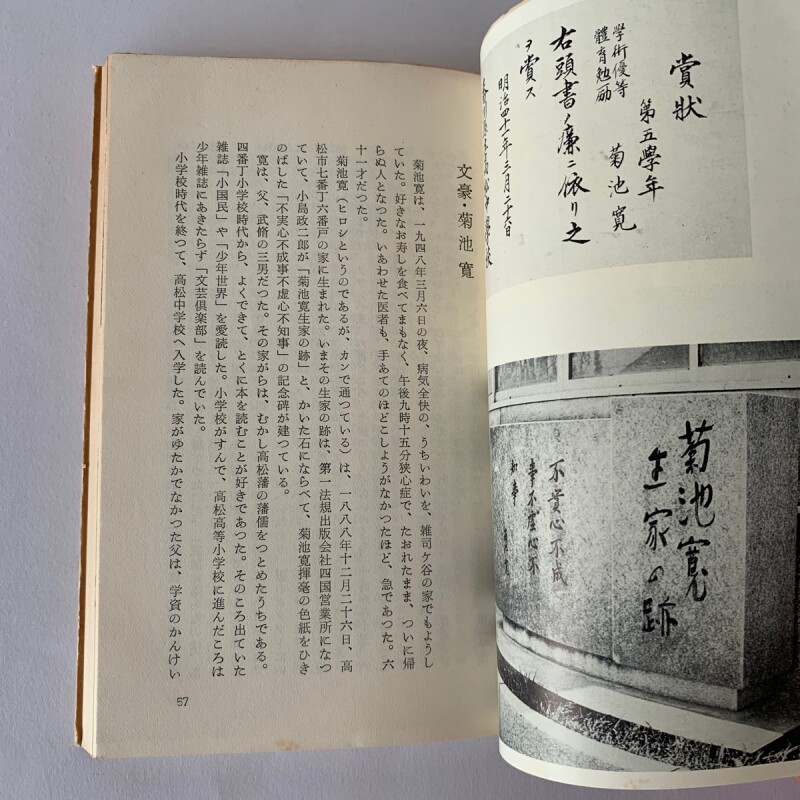 賞狀
第五學年
菊池寛
學術優等
體育勉励
右頭書ノ廉ニ依リ之
ヲ賞ス
明治四十一年三月二十六日
菊池寛
生家の跡
不実心不成
事不虚心不
知事
文豪・菊池寛
菊池寛は、一九四八年三月六日の夜、病気全快の、うちいわいを、雑司ケ谷の家でもようし
ていた。好きなお寿しを食べてまもなく、午後九時十五分狭心症で、たおれたまま、ついに帰
らぬ人となつた。いあわせた医者も、手あてのほどこしようがなかつたほど、急であつた。六
十一才だつた。
菊池寛（ヒロシというのであるが、カンで通つている）は、一八八八年十二月二十六日、高
松市七番丁六番戸の家に生まれた。いまその生家の跡は、第一法規出版会社四国営業所になつ
ていて、小島政二郎が「菊池寛生家の跡」と、かいた石にならべて、菊池寛揮毫の色紙をひき
のばした「不実心不成事不虚心不知事」の記念碑が建つている。
寛は、父、武脩の三男だつた。その家がらは、むかし高松藩の藩儒をつとめたうちである。
四番丁小学校時代から、よくできて、とくに本を読むことが好きであつた。そのころ出ていた
雑誌「小国民」や「少年世界」を愛読した。小学校がすんで、高松高等小学校に進んだころは
少年雑誌にあきたらず「文芸倶楽部」を読んでいた。
小学校時代を終つて、高松中学校へ入学した。家がゆたかでなかつた父は、学資のかんけい
57